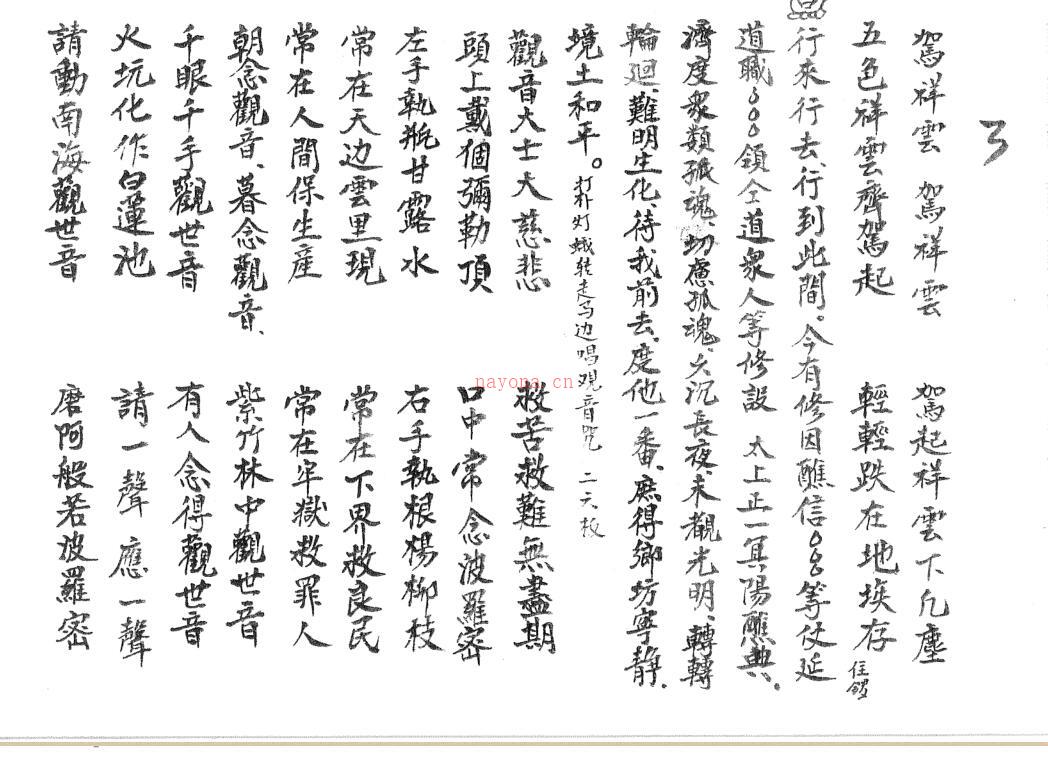 3
駕祥雲 駕祥雲 駕起祥雲下凡塵
五色祥雲齊駕起 輕輕跌在地埃存 住鑼
行來行去、行到此間。今有修因醮信○○○等仗延
道職○○○領仝道衆人等修設 太上正一冥陽醮典、
濟度衆類孤魂、切慮孤魂、久沉長夜、未覩光明、轉轉
輪廻、難明生化、待我前去、度他一番、庶得鄉坊寧静、
境土和平。 打朴灯蛾转走马边唱观音咒 二六板
觀音大士大慈悲 救苦救難無盡期
頭上戴個彌勒頂 口中常念波羅密
左手執瓶甘露水 右手執根楊柳枝
常在天边雲里現 常在下界救良民
常在人間保生産 常在牢獄救罪人
朝念觀音、暮念觀音、 紫竹林中觀世音
千眼千手觀世音 有人念得觀世音
火坑化作白蓮池 請一聲應一聲
請動南海觀世音 磨阿般若波羅密
nayona.cn